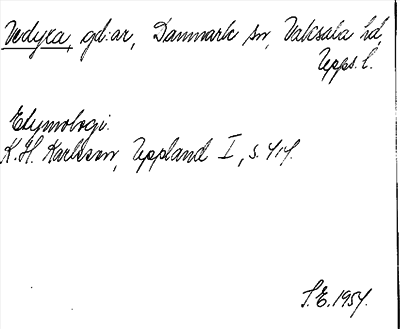 Vedyxa, gd:ar, Danmark sn, Vaksala hd,
Upps. l.
Etymologi.
K. H. Karlsson, Uppland I, s. 414.
S.E. 1954.